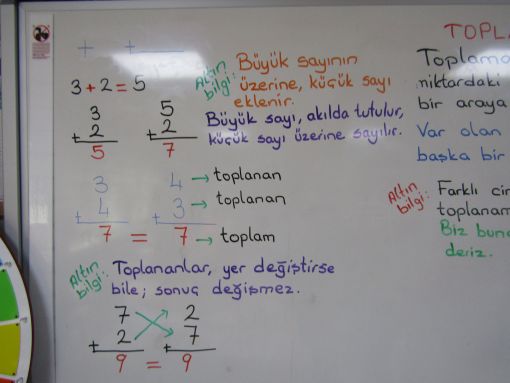 3 + 2 = 5
Altın bilgi: Büyük sayının
üzerine, küçük sayı
eklenir.
Büyük sayı, akılda tutulur,
küçük sayı üzerine sayılır.
3 5
+ 2 + 2
5 7
3 4 → toplanan
+ 4 + 3 → toplanan
7 = 7 → toplam
Altın bilgi: Toplananlar, yer değiştirse
bile; sonuç değişmez.
7 2
+ 2 + 7
9 = 9
TOPLA
Toplama
miktardaki
bir araya
Var olan
başka bir
Altın bilgi: Farklı cin
toplanam
Biz bunc
deriz.